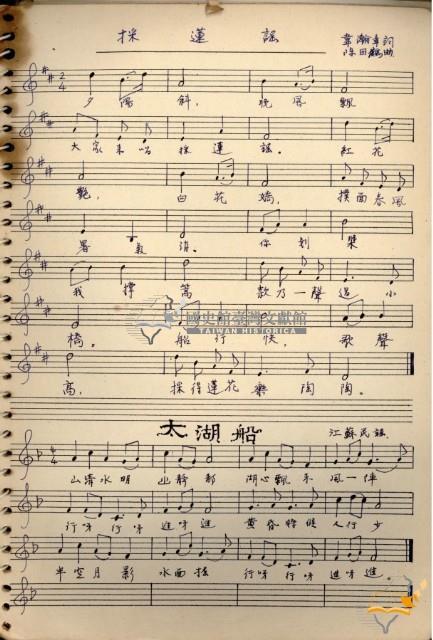 採蓮謠
韋瀚章詞
陳田鶴曲
2/4
夕陽斜，晚風飄
大家來唱採蓮謠。紅花
艷，白花嬌，撲面春風
暑氣消。你划槳
我撐篙 欸乃一聲過小
橋。船行快，歌聲
高，採得蓮花樂陶陶。
國史館臺灣文獻館
TAIWAN HISTORICA
太湖船
江蘇民謠
4/4
山清水明幽靜靜 湖心飄來風一陣
行呀行呀進呀進 黃昏時候人行少
半空月影水面搖 行呀行呀進呀進。